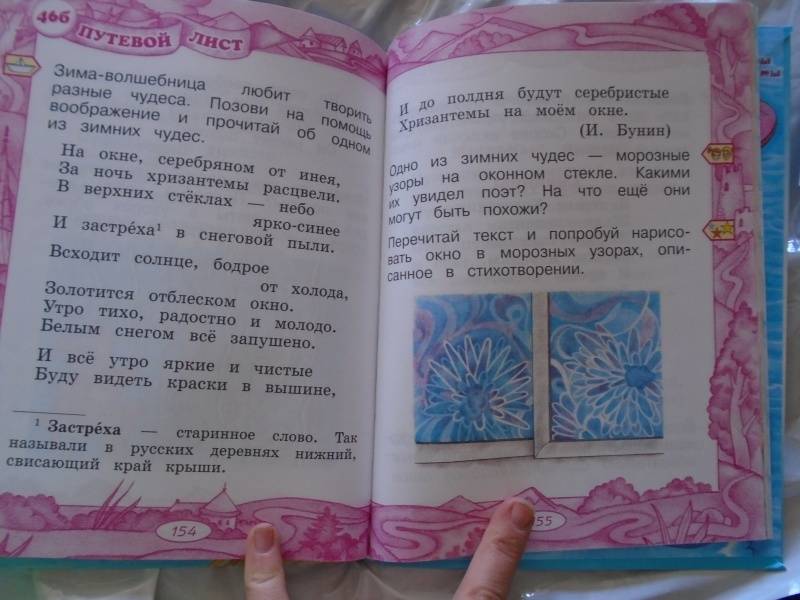 46б
ПУТЕВОЙ ЛИСТ
Зима-волшебница любит творить
разные чудеса. Позови на помощь
воображение и прочитай об одном
из зимних чудес.
На окне, серебряном от инея,
За ночь хризантемы расцвели.
В верхних стёклах — небо
ярко-синее
И застре́ха¹ в снеговой пыли.
Всходит солнце, бодрое
от холода,
Золотится отблеском окно.
Утро тихо, радостно и молодо.
Белым снегом всё запушено.
И всё утро яркие и чистые
Буду видеть краски в вышине,
¹ Застре́ха — старинное слово. Так
называли в русских деревнях нижний,
свисающий край крыши.
154
И до полдня будут серебристые
Хризантемы на моём окне.
(И. Бунин)
Одно из зимних чудес — морозные
узоры на оконном стекле. Какими
их увидел поэт? На что ещё они
могут быть похожи?
Перечитай текст и попробуй нарисо-
вать окно в морозных узорах, опи-
санное в стихотворении.
55